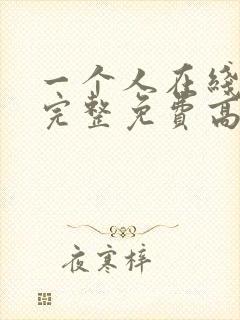 一个人在线
完整免费高
夜寒梓